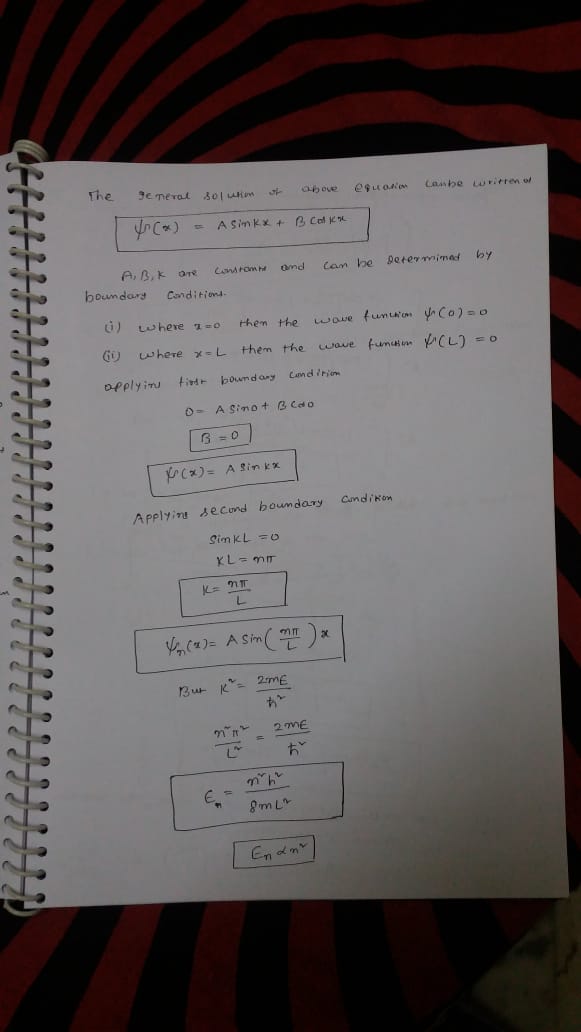 The general solution of above equation canbe written as
ψ(x) = A sinkx + B cos kx
A, B, K are constants and can be determined by
boundary conditions.
(i) where x=0 then the wave function ψ(0)=0
(ii) where x=L then the wave function ψ(L) =0
applying first boundary condition
0= A sin0 + B cos0
B = 0
ψ(x)= A sin kx
Applying second boundary condition
sinKL =0
KL = nπ
K= nπ/L
ψn(x)= A sin(nπ/L)x
But K² = 2mE/ħ²
n²π²/L² = 2mE/ħ²
En = n²h²/8mL²
En ∝ n²